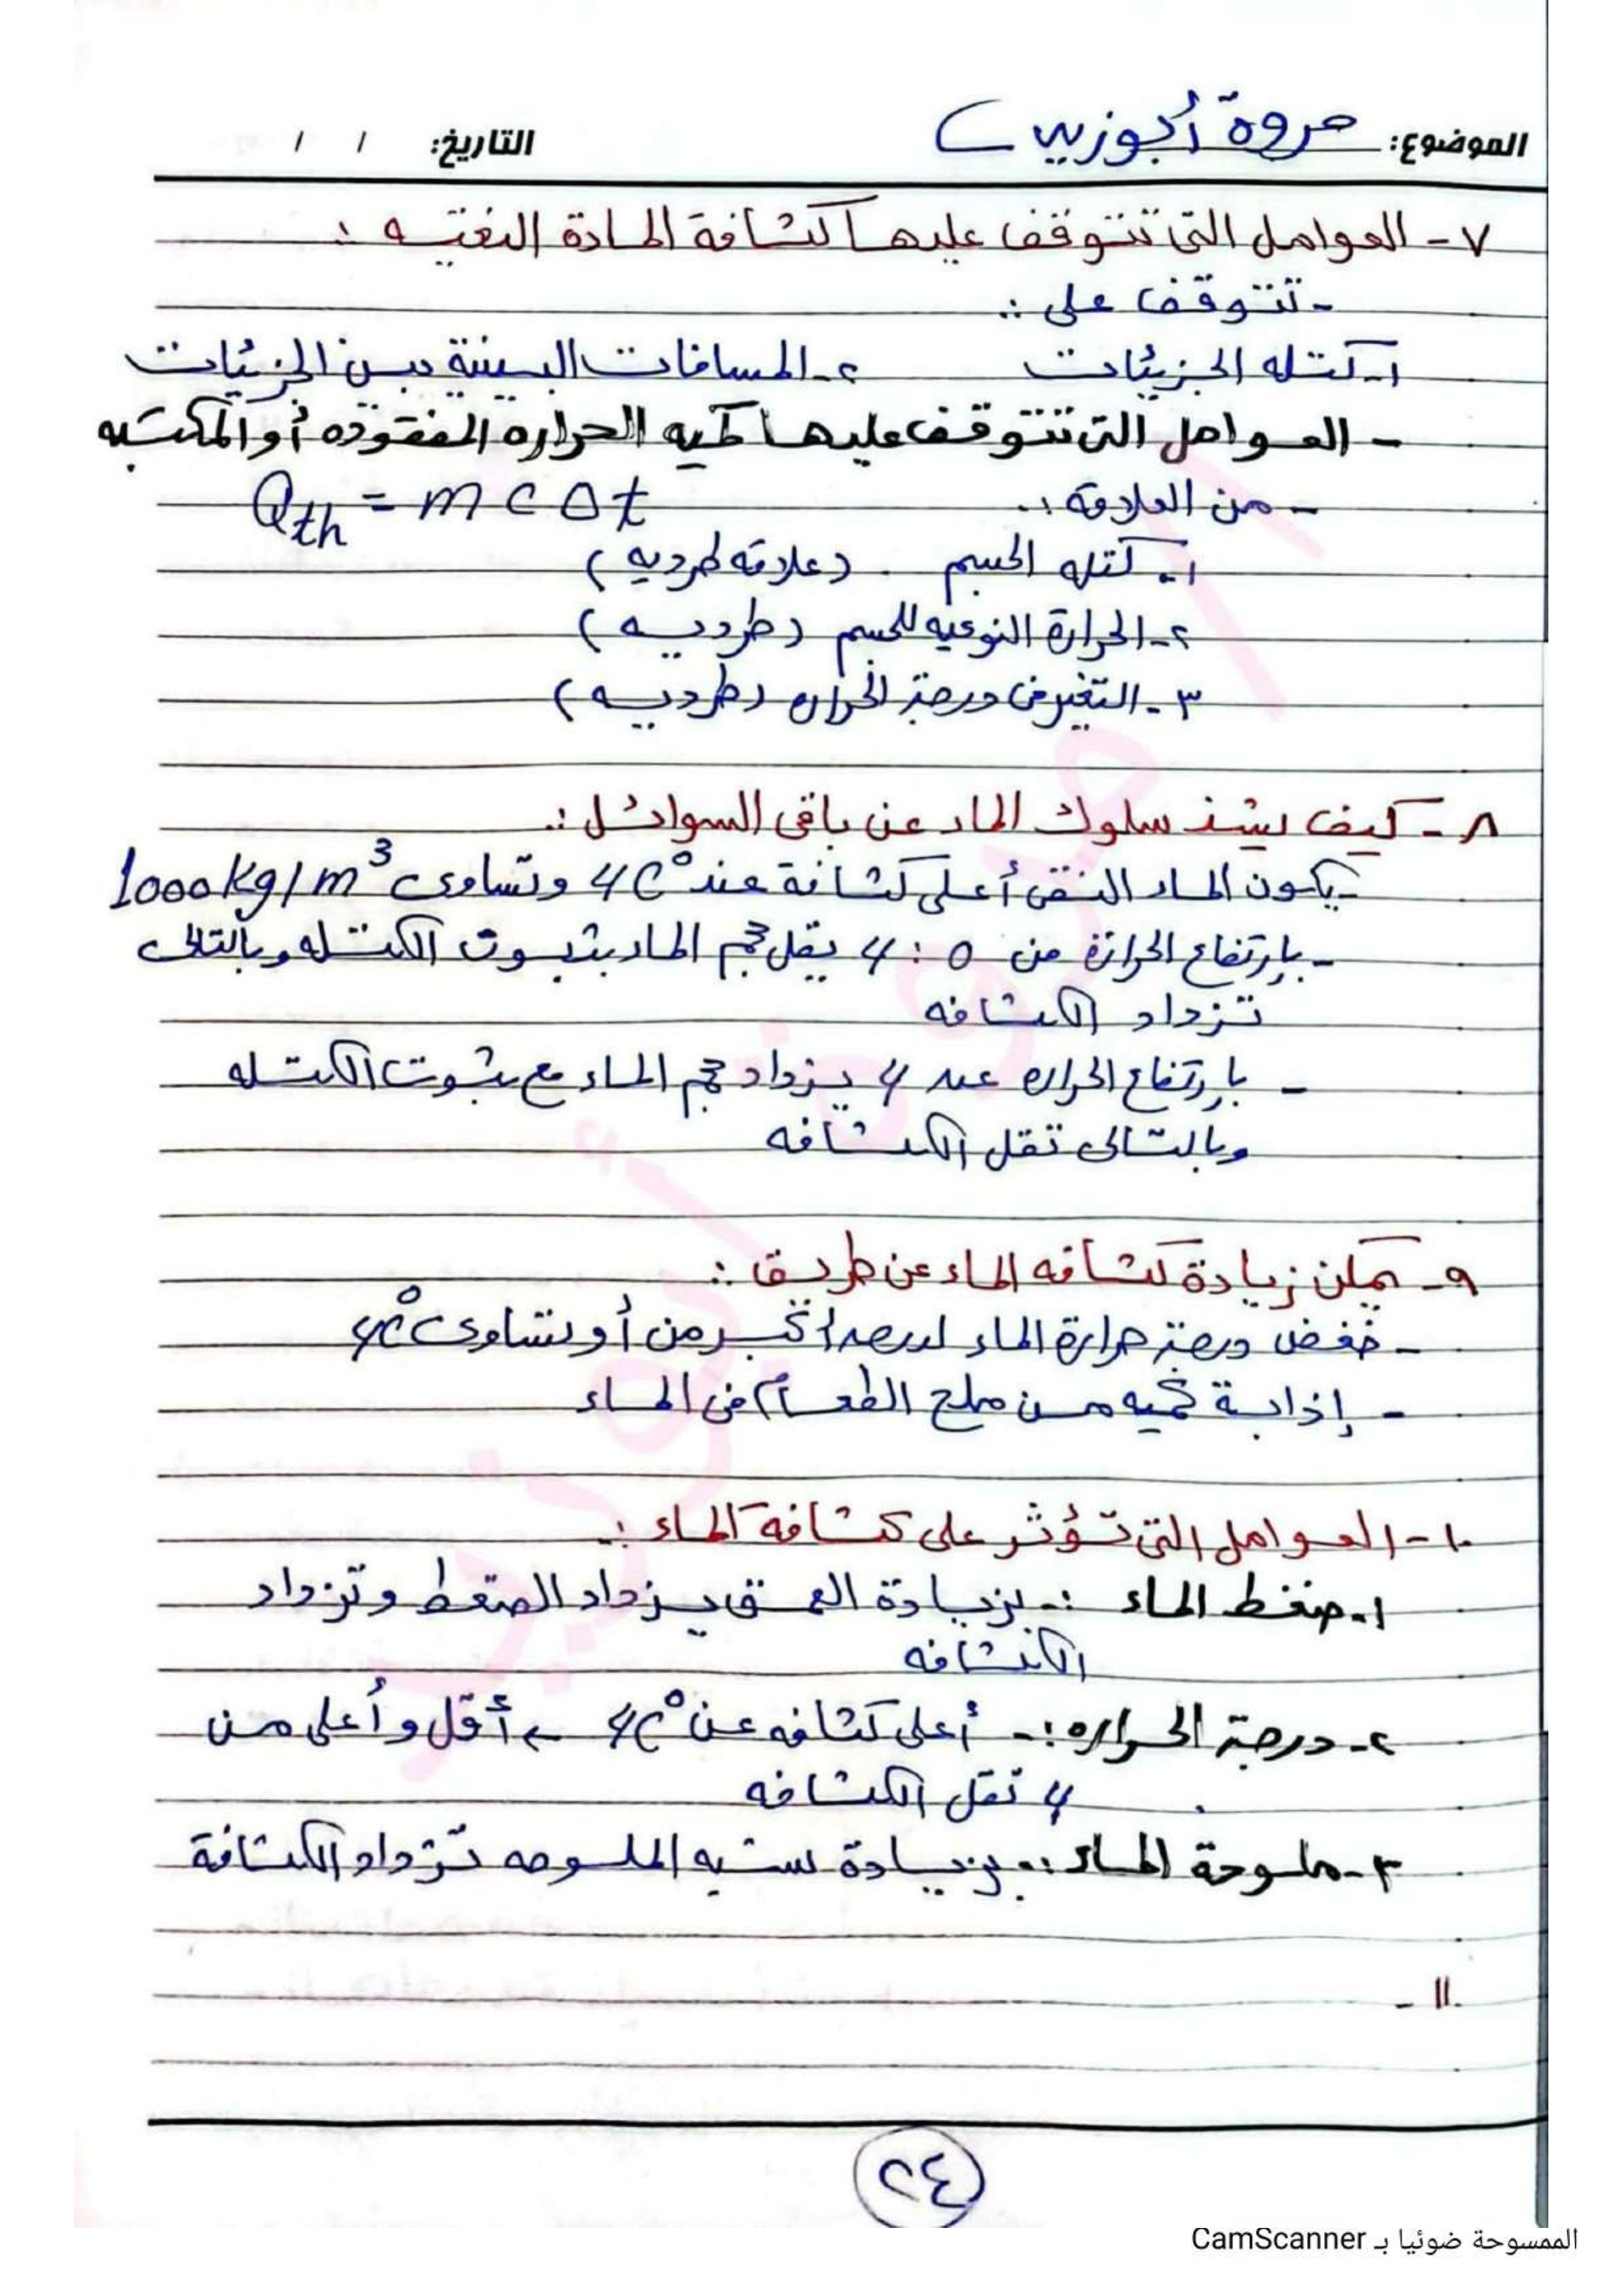 الموضوع: مروة أبوزيد
التاريخ: / /
٧- العوامل التي تتوقف عليها كثافة المادة النقيه :
- تتوقف على :
١- كتله الجزيئات ٢- المسافات البينية بين الجزيئات
- العوامل التى تتوقف عليها كميه الحراره المفقوده أو المكتسبه
- من العلاقة : Qth = m c Δt
١- كتله الجسم (علاقه طرديه)
٢- الحرارة النوعيه للجسم (طرديه)
٣- التغير فى درجة الحراره (طرديه)
٨ - كيف يشذ سلوك الماء عن باقى السوائل :
- يكون الماء النقى أعلى كثافة عند 4C° وتساوى 1000kg/m³
- بإرتفاع الحرارة من 0 : 4 يقل حجم الماء بثبوت الكتله وبالتالى
تزداد الكثافه
- بارتفاع الحراره عند 4 يزداد حجم الماء مع ثبوت الكتله
وبالتالى تقل الكثافه
٩- يمكن زيادة كثافه الماء عن طريق :
- خفض درجة حرارة الماء لدرجه أكبر من أو تساوى 4C°
- إذابة كميه من ملح الطعام فى الماء
١٠- العوامل التى تؤثر على كثافة الماء :
١- ضغط الماء :- بزيادة العمق يزداد الضغط وتزداد
الكثافه
٢- درجة الحراره :- أعلى كثافه عند 4C° ← أقل وأعلى من
4 تقل الكثافه
٣- ملوحة الماء :- بزيادة نسبه الملوحه تزداد الكثافة
١١ -
٢٤
الممسوحة ضوئيا بـ CamScanner